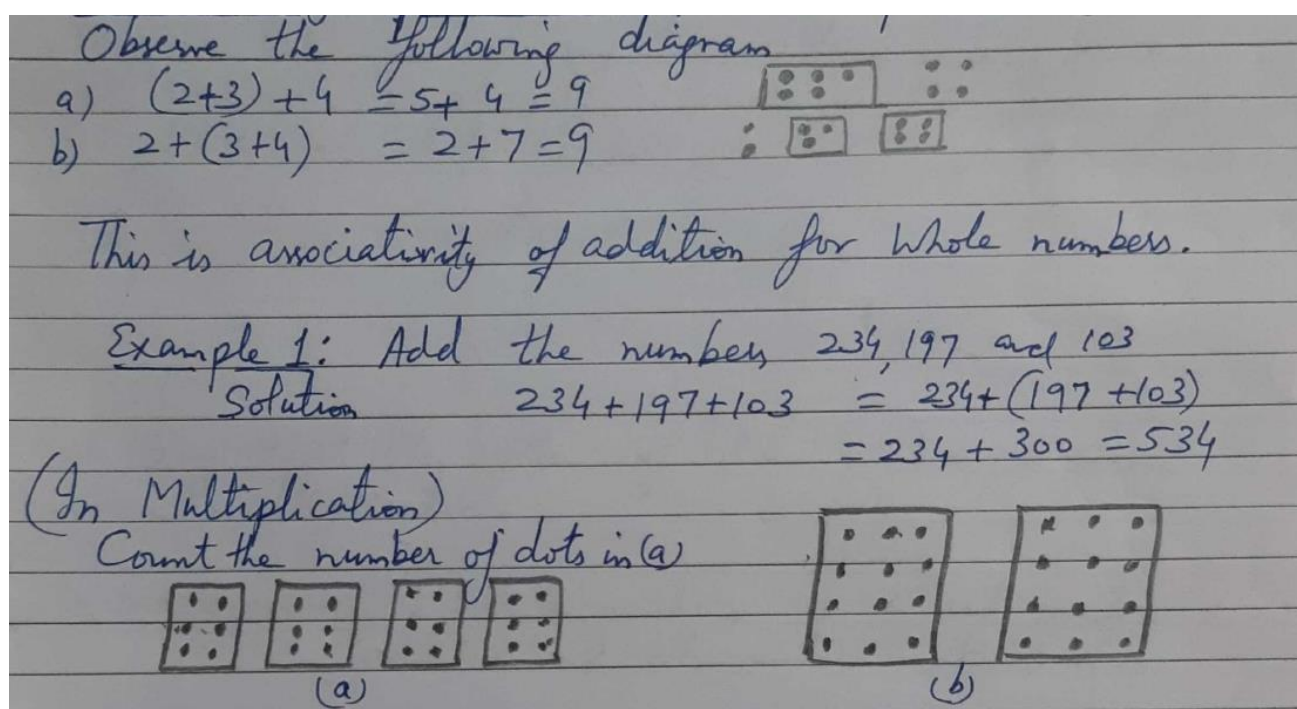 Observe the following diagram
a) (2+3)+4 = 5+ 4 = 9
b) 2+(3+4) = 2+7=9
This is associativity of addition for Whole numbers.
Example 1: Add the numbers 234, 197 and 103
Solution 234+197+103 = 234+(197+103)
= 234 + 300 = 534
(In Multiplication)
Count the number of dots in (a)
(a) (b)